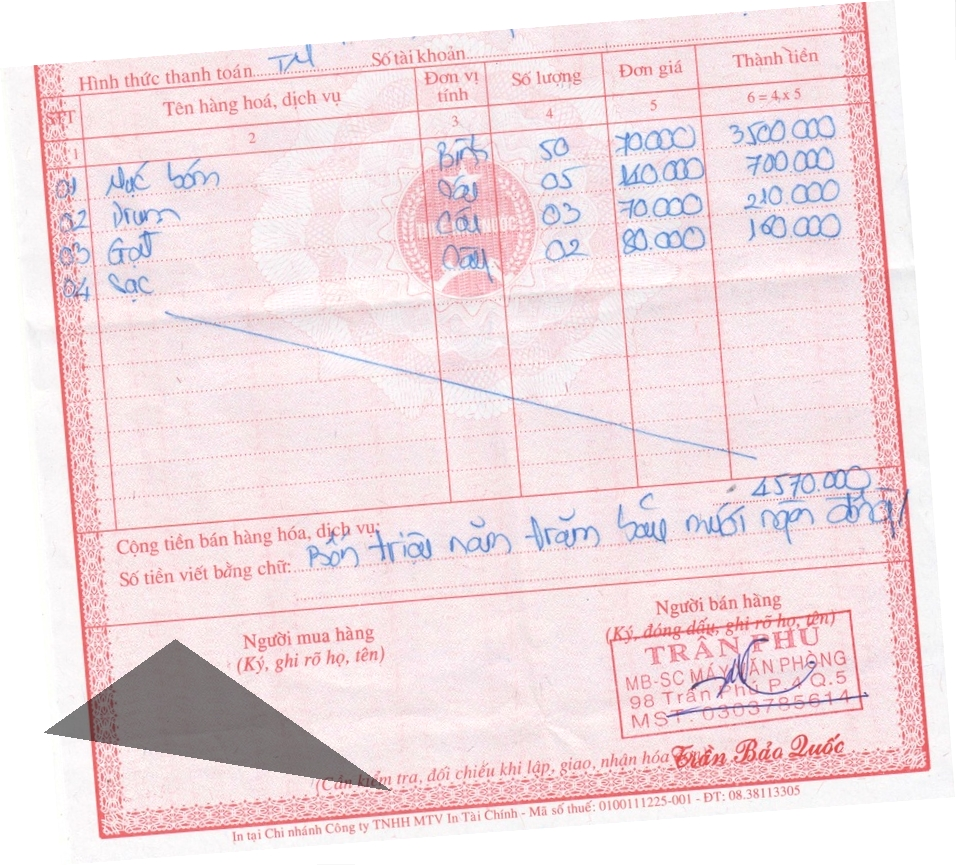 Hình thức thanh toán TM Số tài khoản
STT Tên hàng hoá, dịch vụ Đơn vị tính Số lượng Đơn giá Thành tiền
1 2 3 4 5 6 = 4 x 5
01 Mực bơm Bình 50 70.000 3500.000
02 Drum Cây 05 140.000 700.000
03 Gạt Cây 03 70.000 210.000
04 Sạc Cây 02 80.000 160.000
Cộng tiền bán hàng hóa, dịch vụ: 4570.000
Số tiền viết bằng chữ: Bốn triệu năm trăm bảy mươi ngàn đồng
Người mua hàng
(Ký, ghi rõ họ, tên)
Người bán hàng
(Ký, đóng dấu, ghi rõ họ, tên)
TRẦN PHÚ
MB-SC MÁY VĂN PHÒNG
98 Trần Phú P.4 Q.5
MST: 0303785614
(Cần kiểm tra, đối chiếu khi lập, giao, nhận hóa
Trần Bảo Quốc
In tại Chi nhánh Công ty TNHH MTV In Tài Chính - Mã số thuế: 0100111225-001 - ĐT: 08.38113305